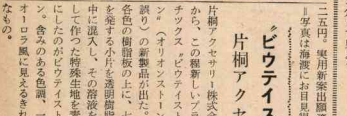 二五円。実用新案出願
＝写真は海渡にお目見得
“ビウテイス
片桐アクセ
片桐アクセサリー株式会
から、この程新しいプラ
チックス〝ビウテイスト
ン〟（オリオンストーン
誤り）の新製品が出た。
各色の樹脂板の上に、七
を発する小片を透明樹脂
中に混入し、その溶液を
して作つた特殊生地を素
にしたのがビウテイスト
ン。含みのある色調、
オーロラ風に見えるきれ
なもの。